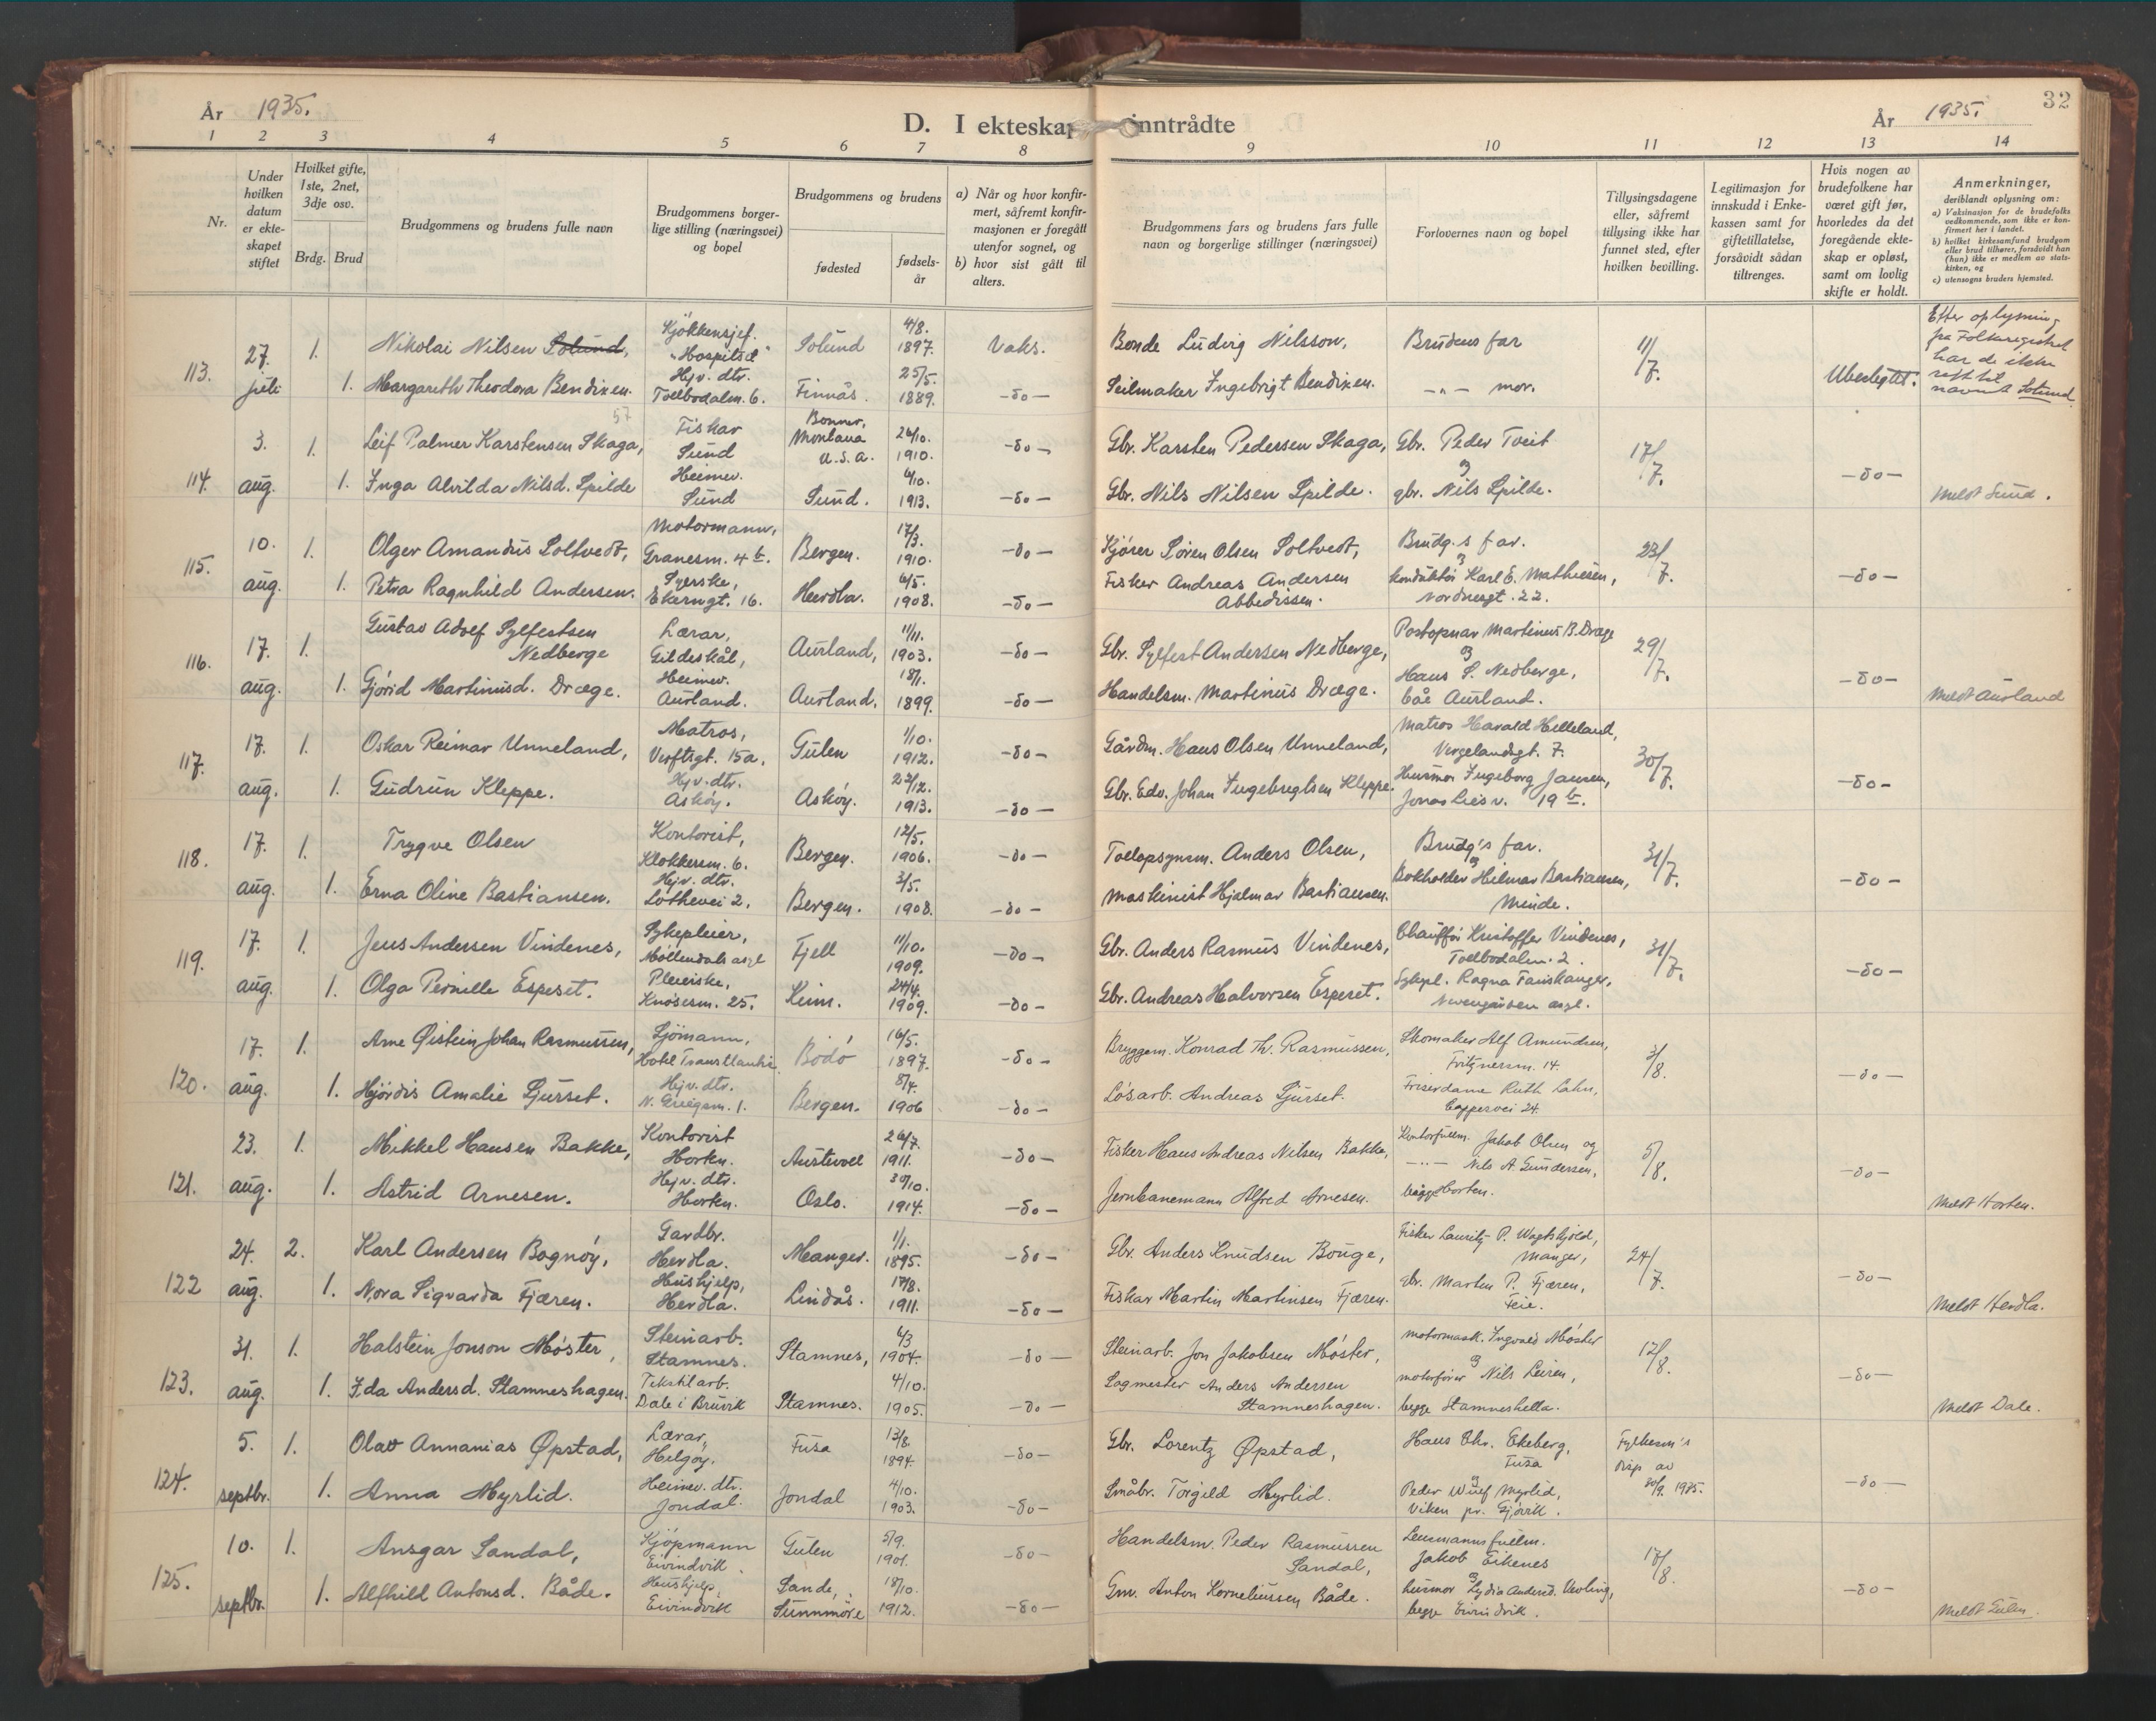 År 1935.
D. I ekteskap inntrådte
År 1935.
32
1 2 3 4 5 6 7 8 9 10 11 12 13 14
Nr.
Under hvilken datum er ekte-skapet stiftet
Hvilket gifte, 1ste, 2net, 3dje osv.
Brdg. Brud
Brudgommens og brudens fulle navn
Brudgommens borger-lige stilling (næringsvei) og bopel
Brudgommens og brudens
fødested
fødsels-år
a) Når og hvor konfir-mert, såfremt konfir-masjonen er foregått utenfor sognet, og
b) hvor sist gått til alters.
Brudgommens fars og brudens fars fulle navn og borgerlige stillinger (næringsvei)
Forlovernes navn og bopel
Tillysingsdagene eller, såfremt tillysing ikke har funnet sted, efter hvilken bevilling.
Legitimasjon for innskudd i Enke-kassen samt for giftetillatelse, forsåvidt sådan tiltrenges.
Hvis nogen av brudefolkene har været gift før, hvorledes da det foregående ekte-skap er opløst, samt om lovlig skifte er holdt.
Anmerkninger, deriblandt oplysning om:
a) Vaksinasjon for de brudefolks vedkommende, som ikke er kon-firmert her i landet.
b) hvilket kirkesamfund brudgom eller brud tilhører, forsåvidt han (hun) ikke er medlem av stats-kirken, og
c) utensogns bruders hjemsted.
113. 27. juli
1. Nikolai Nilsen Solund, Kjøkkensjef. "Hospitset" Solund 4/8. 1897. Vaks. Bonde Ludvig Nilsson, Brudens far 11/7. Ubeslegtet.
1. Margareth Theodora Bendixen. Hjv. dtr. Tollbodalm. 6. Finnås. 25/5. 1889. -do- Seilmaker Ingebrigt Bendixen. -"- mor.
Etter oplysning fra Folkeregistret har de ikke rett til navnet Solund.
114. 3. aug.
1. Leif Palmer Karstensen Skaga, Fiskar Sund Bonner, Montana U.S.A. 26/10. 1910. -do- Gbr. Karsten Pedersen Skaga, Gbr. Peder Tveit og 17/7. -do-
1. Inga Alvilda Nilsd. Spilde Heimev. Sund Sund. 6/10. 1913. -do- Gbr. Nils Nilsen Spilde. gbr. Nils Spilde. Meldt Sund.
115. 10. aug.
1. Olger Amandus Soltvedt, Motormann, Granesm. 4 b. Bergen. 17/3. 1910. -do- Kjører Søren Olsen Soltvedt, Brudg.s far. og 23/7. -do-
1. Petra Ragnhild Andersen. Syerske, Ekerngt. 16. Herdla. 6/5. 1908. -do- Fisker Andreas Andersen Abbedissen. konduktør Karl E. Mathiesen, Nordnesgt. 22.
116. 17. aug.
1. Gustav Adolf Sylfestsen Nedberge Lærar, Gildeskål, Aurland, 11/11. 1903. -do- Gbr. Sylfest Andersen Nedberge, Postopnar Martinus B. Dræge og 29/7. -do-
1. Gjørid Martinusd. Dræge. Heimev. Aurland. Aurland. 18/1. 1899. -do- Handelsm. Martinus Dræge. Hans S. Nedberge, båe Aurland. Meldt Aurland
117. 17. aug.
1. Oskar Reimar Unneland, Matros, Verftsgt. 15a. Gulen 1/10. 1912. -do- Gårdm. Hans Olsen Unneland, Matros Harald Helleland, Vergelandsgt. 7. 30/7. -do-
1. Gudrun Kleppe. Hjv. dtr. Askøy. Askøy. 22/12. 1913. -do- Gbr. Edv. Johan Ingebregtsen Kleppe. Husmor Ingeborg Jansen, Jonas Liesv. 19 b.
118. 17. aug.
1. Trygve Olsen Kontorist, Klokkersm. 6. Bergen. 12/5. 1906. -do- Tollopsynsm. Anders Olsen, Brudg's far. og 31/7. -do-
1. Erna Oline Bastiansen. Hjv. dtr. Lothevei 2. Bergen. 3/5. 1908. -do- Maskinist Hjalmar Bastiansen. Bokholder Hilmar Bastiansen, Minde.
119. 17. aug.
1. Jens Andersen Vindenes, Sykepleier, Møllendals asyl Fjell 11/10. 1909. -do- Gbr. Anders Rasmus Vindenes, Chauffør Kristoffer Vindenes, Tollbodalm. 2. 31/7. -do-
1. Olga Pernille Espeset. Pleierske, Knøsesm. 25. Keim. 24/4. 1909. -do- Gbr. Andreas Halvorsen Espeset. Sykepl. Ragna Fanskanger, Neevengården asyl.
120. 17. aug.
1. Arne Øistein Johan Rasmussen, Sjømann, Hotel Transatlantic. Bodø 16/5. 1897. -do- Bryggem. Konrad Th. Rasmussen, Skomaker Alf Amundsen, Fritznersm. 14. 3/8. -do-
1. Hjørdis Amalie Sjurset. Hjv. dtr. N. Griegsm. 1. Bergen. 8/4. 1906 -do- Løsarb. Andreas Sjurset. Friserdame Ruth Lahn, Cappesvei 24.
121. 23. aug.
1. Mikkel Hansen Bakke, Kontorist Horten. Austevoll 26/7. 1911. -do- Fisker Hans Andreas Nilsen Bakke, Kontorfullm. Jakob Olsen og 5/8. -do-
1. Astrid Arnesen. Hjv. dtr. Horten. Oslo. 30/10. 1914. -do- Jernbanemann Alfred Arnesen. -"- Nils A. Gundersen, begge Horten. Meldt Horten.
122 24. aug.
2. Karl Andersen Bognøy, Gardbr. Herdla. Manger. 1/1. 1895. -do- Gbr. Anders Knudsen Bouge, Fisker Lauritz P. Wagtskjold, Manger, 24/7. -do-
1. Nora Sigvarda Fjæren. Hushjelp, Herdla. Lindås. 17/8. 1911. -do- Fiskar Martin Martinsen Fjæren. gbr. Marten P. Fjæren, Feie. Meldt Herdla.
123. 31. aug.
1. Halstein Jonson Møster, Steinarb. Stamnes. Stamnes, 6/3 1904. -do- Steinarb. Jon Jakobsen Møster, motormask. Ingvald Møster og 12/8. -do-
1. Ida Andersd. Stamneshagen. Tekstilarb. Dale i Bruvik Stamnes. 4/10. 1905. -do- Sagmester Anders Andersen Stamneshagen. motorfører Nils Leiren, begge Stamneshella. Meldt Dale.
124. 5. septbr.
1. Olav Annanias Øpstad, Lærar, Helgøy. Fusa 13/8. 1894. -do- Gbr. Lorentz Øpstad, Hans Chr. Ekeberg, Fusa og Fylkesm's disp av 30/9. 1935. -do-
1. Anna Myrlid. Heimev. dtr. Jondal. Jondal 4/10. 1903. -do- Småbr. Torgeld Myrlid. Peder Myrlid, Viken pr. Gjøvik.
125. 10. septbr.
1. Ansgar Sandal, Kjøpmann Eivindvik. Gulen 5/9. 1901. -do- Handelsm. Peder Rasmussen Sandal, Lensmannsfullm. Jakob Eikenes og 17/8. -do-
1. Alfhild Antonsd. Både. Hushjelp, Eivindvik Sande, Sunnmøre 18/10. 1912. -do- Gm. Anton Korneliussen Både. husmor Lydia Andersd. begge Eivindvik. Meldt Gulen.